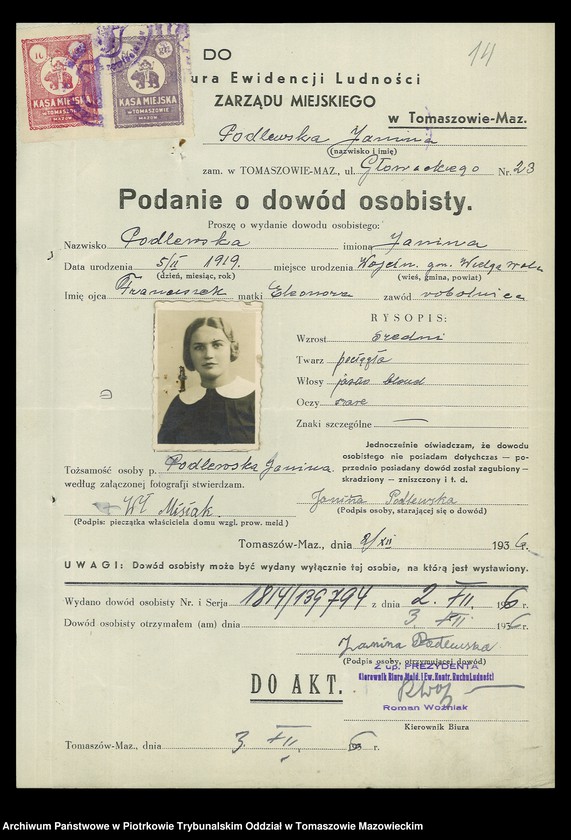 14
KASA MIEJSKA
W TOMASZOWIE
MAZOW.
KASA MIEJSKA
W TOMASZOWIE
MAZOW.
DO
ura Ewidencji Ludności
ZARZĄDU MIEJSKIEGO
w Tomaszowie-Maz.
Podlewska Janina
(nazwisko i imię)
zam. w TOMASZOWIE-MAZ., ul. Głowackiego Nr. 23
Podanie o dowód osobisty.
Proszę o wydanie dowodu osobistego:
Nazwisko Podlewska imiona Janina
Data urodzenia 5/II 1919. miejsce urodzenia gm.
(dzień, miesiąc, rok) (wieś, gmina, powiat)
Imię ojca Franciszek matki Eleonora zawód robotnica
RYSOPIS:
Wzrost średni
Twarz pociągła
Włosy jasno blond
Oczy szare
Znaki szczególne —
Jednocześnie oświadczam, że dowodu
osobistego nie posiadam dotychczas — po-
przednio posiadany dowód został zagubiony —
skradziony — zniszczony i t. d.
Tożsamość osoby p. Podlewska Janina.
według załączonej fotografji stwierdzam.
Wł Misiak
(Podpis: pieczątka właściciela domu wzgl. prow. meld )
Janina Podlewska
(Podpis osoby, starającej się o dowód)
Tomaszów-Maz., dnia 2/XII 1936.
UWAGI: Dowód osobisty może być wydany wyłącznie tej osobie, na którą jest wystawiony.
Wydano dowód osobisty Nr. i Serja 1814/139794 z dnia 2. XII. 1936 r.
Dowód osobisty otrzymałem (am) dnia 3. XII 1936 r.
Janina Podlewska
(Podpis osoby, otrzymującej dowód)
Z up. PREZYDENTA
Kierownik Biura Meld. i Ew. Kontr. Ruchu Ludności
Roman Woźniak
Kierownik Biura
DO AKT.
Tomaszów-Maz., dnia 3. XII. 1936 r.
Archiwum Państwowe w Piotrkowie Trybunalskim Oddział w Tomaszowie Mazowieckim